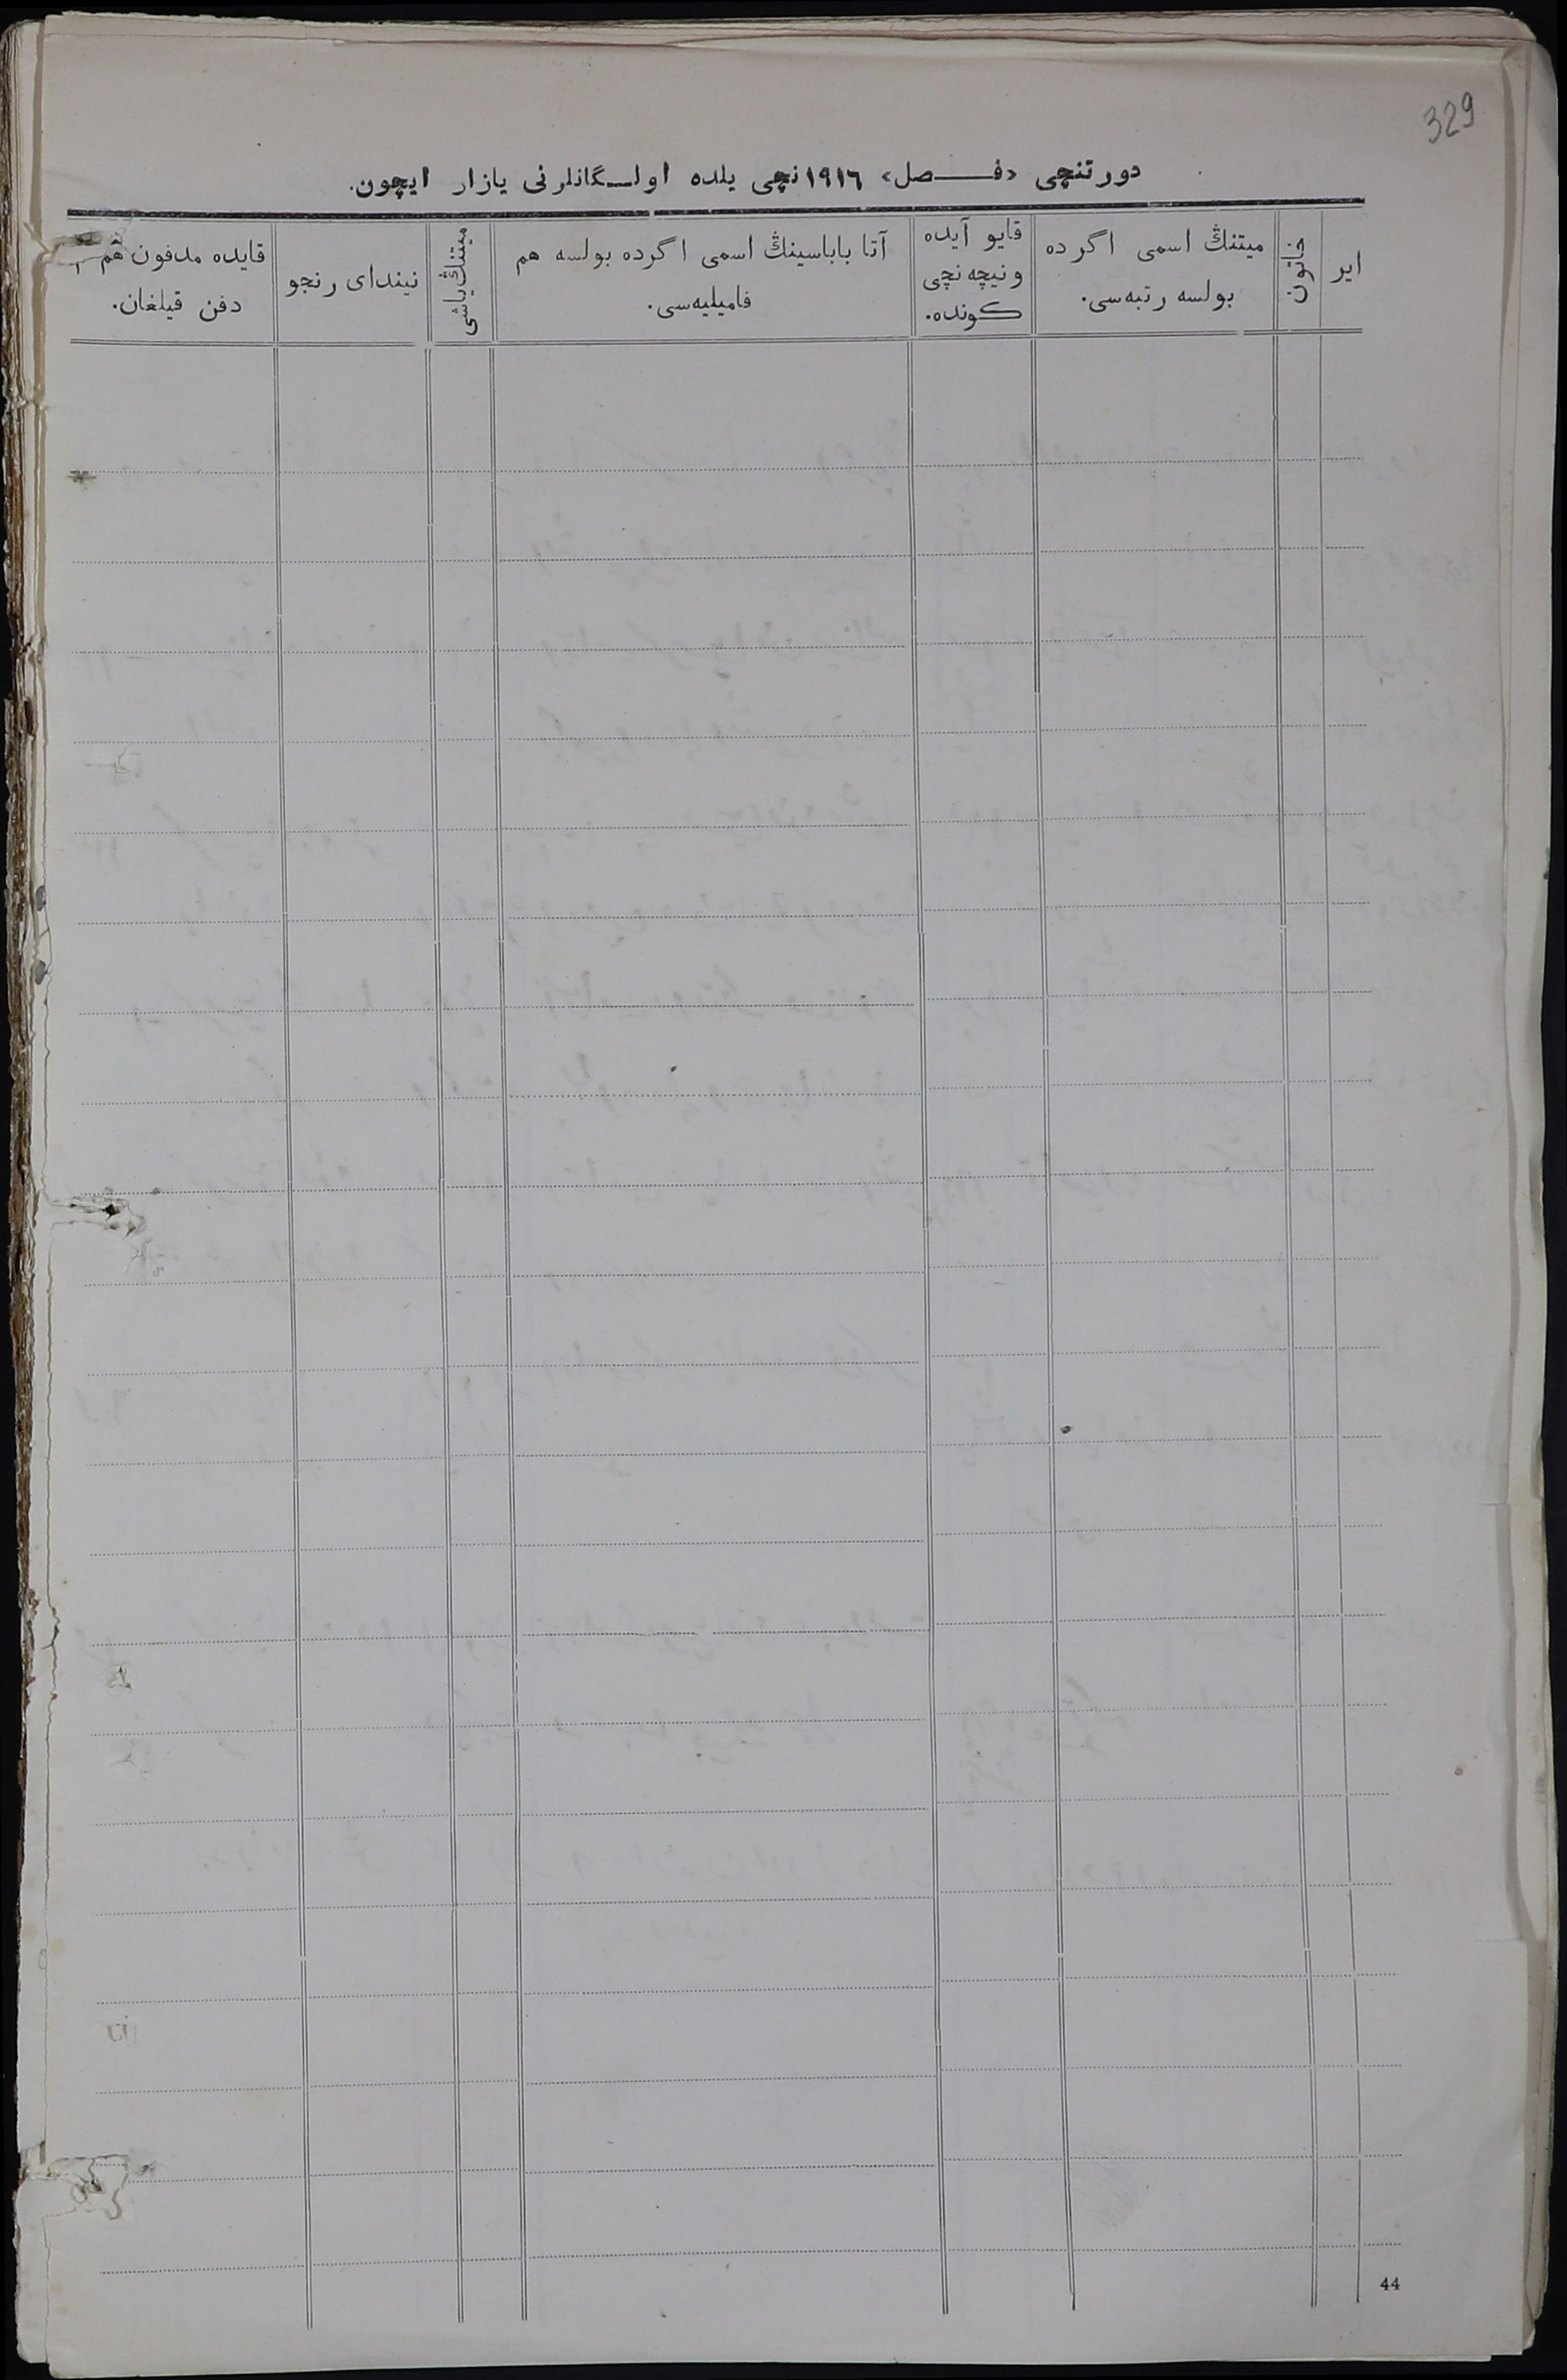 329
دورتنچی «فصل» ١٩١٦نچی یلده اولگانلرنی یازار ایچون.
ایر
خاتون
میتنڭ اسمی اگرده
بولسه رتبه‌سی.
قایو آیده
ونیچه نچی
کونده.
آتا باباسینڭ اسمی اگرده بولسه هم
فامیلیه‌سی.
میتنڭ یاشی
نیندای رنجو
قایده مدفون هم
دفن قیلغان.
44